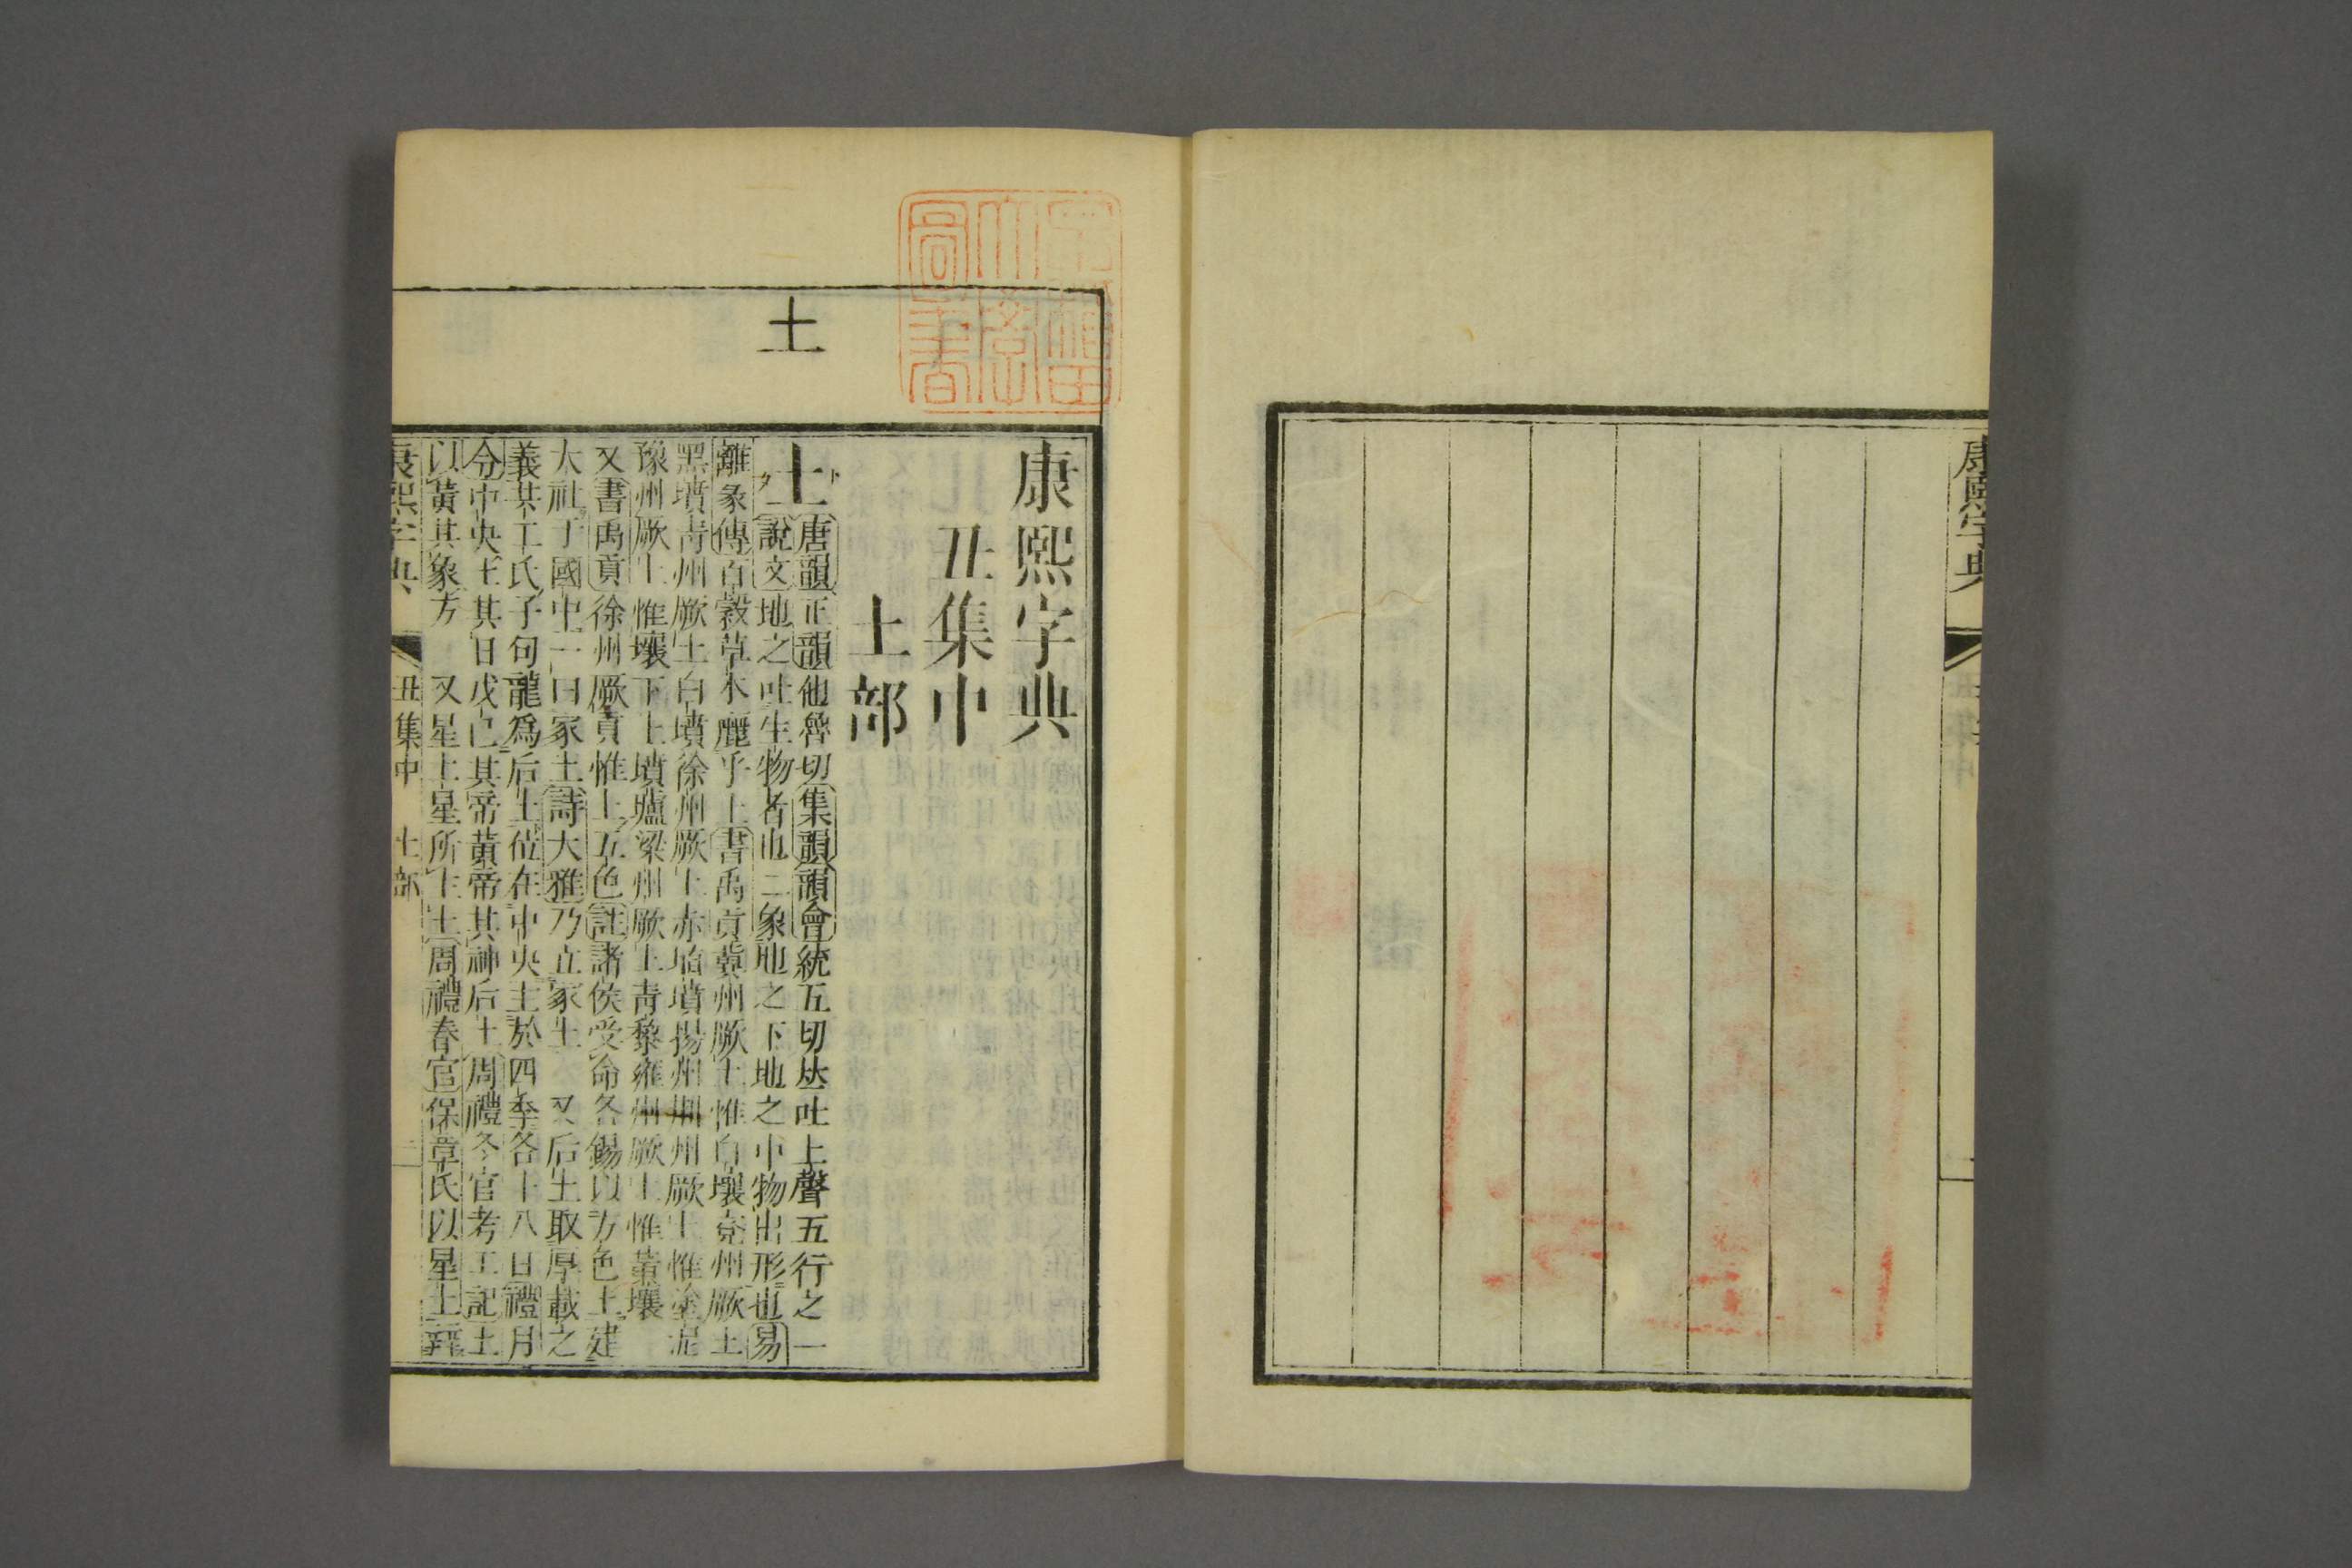 康熙字典
康熙字典
丑集中
土部
土
土 唐韻正韻他魯切集韻韻會統五切𠀤吐上聲五行之一
說文地之吐生物者也二象地之下地之中物出形也易
離彖傳百穀草木麗乎土書禹貢冀州厥土惟白壤兗州厥土
黑墳靑州厥土白墳徐州厥土赤埴墳揚州荆州厥土惟塗泥
豫州厥土惟壤下土墳壚梁州厥土靑黎雍州厥土惟黃壤
又書禹貢徐州厥貢惟土五色註諸侯受命各錫以方色土建
大社于國中一曰冢土詩大雅乃立冢土 又后土取厚載之
義共工氏子句龍爲后土位在中央主於四季各十八日禮月
令中央土其日戊己其帝黃帝其神后土周禮冬官考工記土
以黃其象方 又星土星所主土周禮春官保章氏以星土辨
康熙字典 丑集中 土部